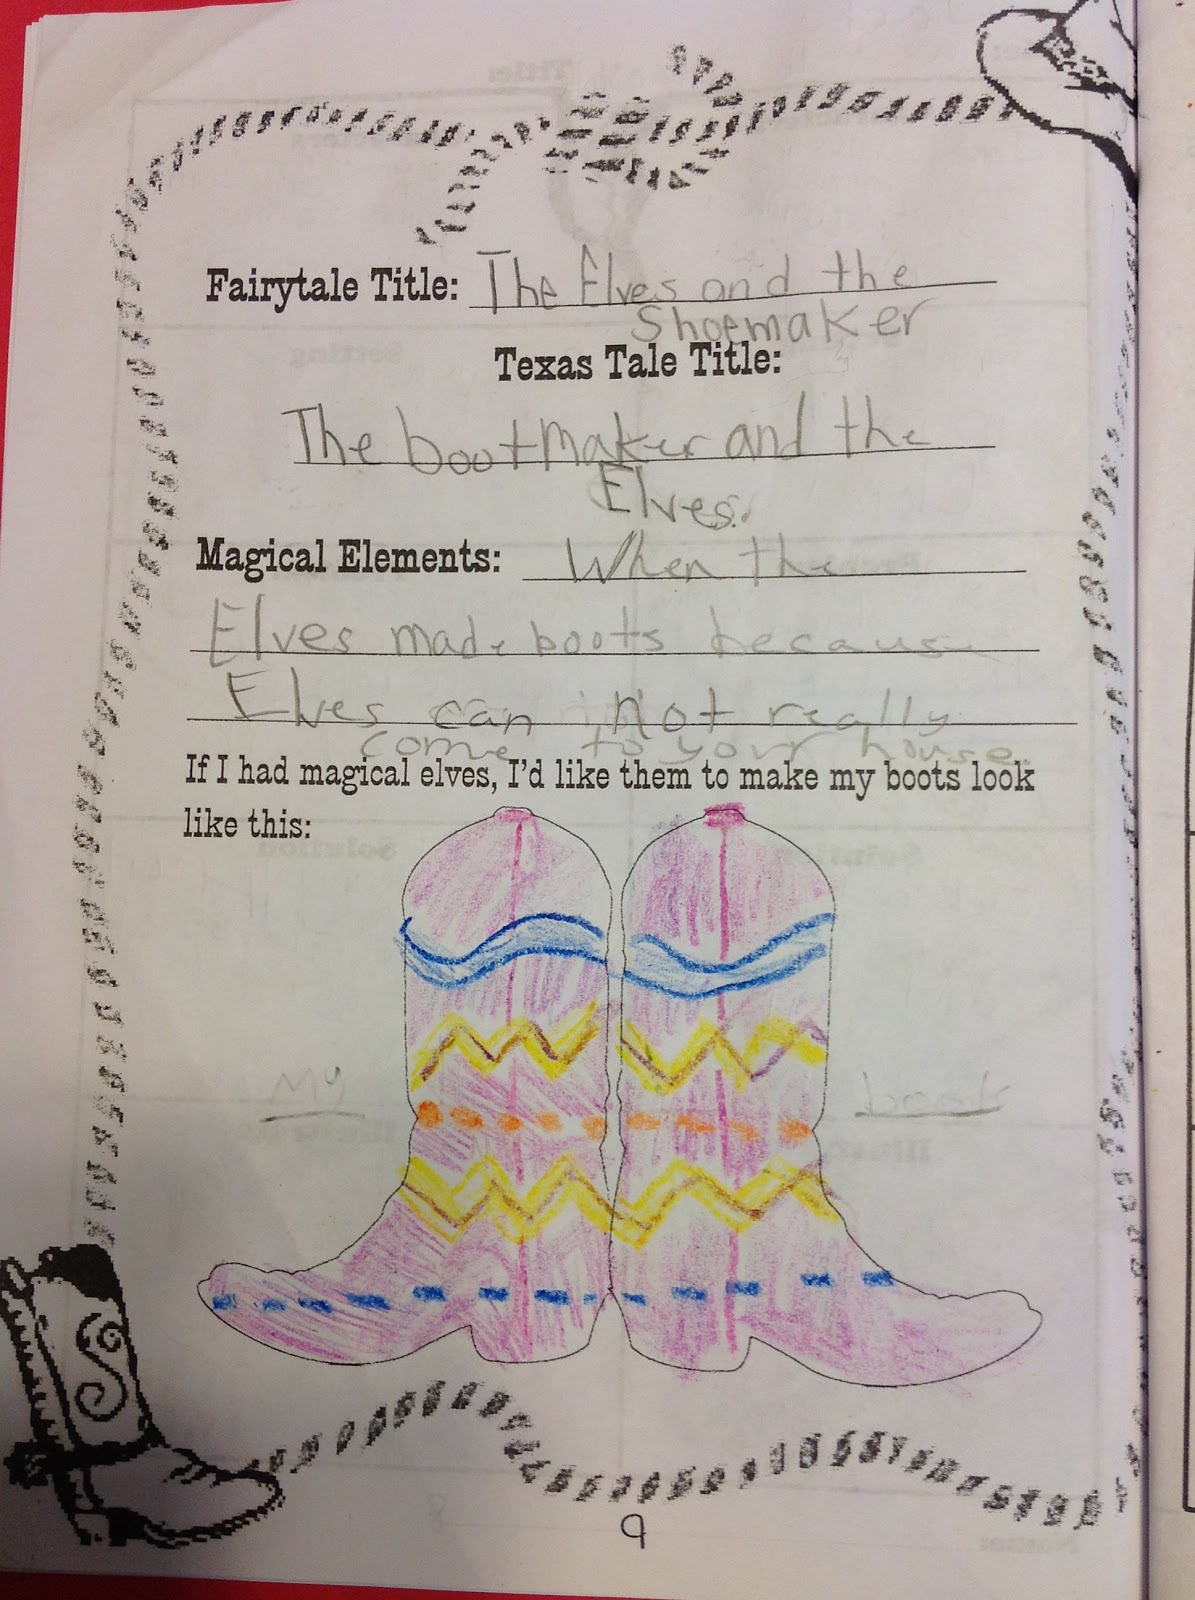 Fairytale Title: The Elves and the
Shoemaker
Texas Tale Title:
The bootmaker and the
Elves.
Magical Elements: When the
Elves made boots because
Elves can not really
come to your house.
If I had magical elves, I'd like them to make my boots look
like this:
My
9